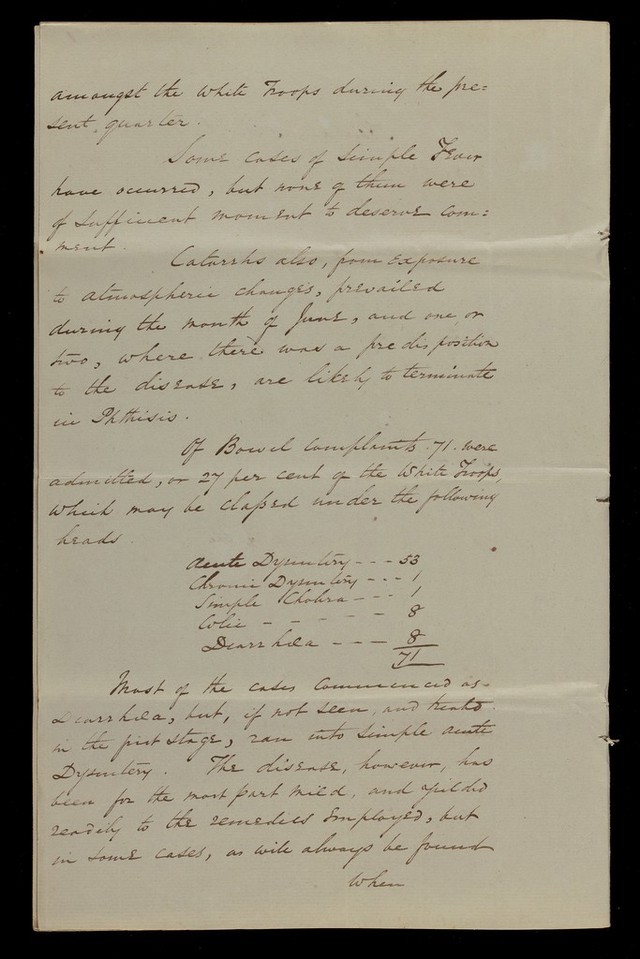 amongst the White Troops during the pre=
sent quarter.
Some cases of Simple Fever
have occurred, but none of them were
of sufficient moment to deserve com=
ment.
Catarrhs also, from exposure
to atmospheric changes, prevailed
during the month of June, and one or
two, where there was a predisposition
to the disease, are likely to terminate
in Phthisis.
Of Bowel Complaints .71. were
admitted, or 27 per cent of the White Troops,
which may be claſsed under the following
heads.
Acute Dysentery - - - 53
Chronic Dysentery - - - 1
Simple Cholera - - - 1
Colic - - - - - - 8
Diarrhœa - - - 8
71
Most of the cases commenced as
Diarrhœa, but, if not seen, and treated
in the first stage, ran into simple acute
Dysentery. The disease, however, has
been for the most part mild, and yielded
readily to the remedies employed, but
in some cases, as will always be found
When